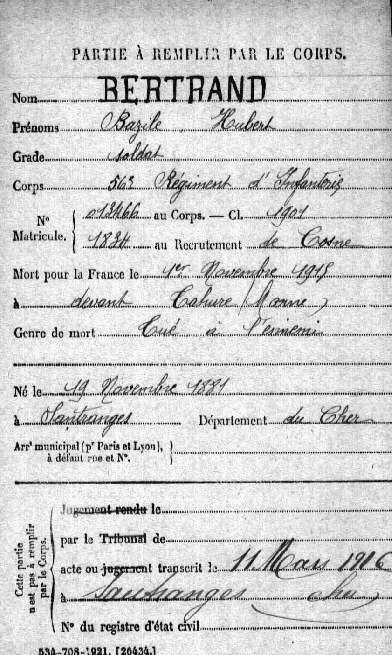 PARTIE À REMPLIR PAR LE CORPS.
Nom BERTRAND
Prénoms Bazile Hubert
Grade soldat
Corps 56e Régiment d'Infanterie
N° Matricule. { 012466 au Corps. — Cl. 1901
1834 au Recrutement de Cosne
Mort pour la France le 1er Novembre 1915
à devant Tahure (Marne)
Genre de mort Tué à l'ennemi
Né le 19 Novembre 1881
à Santranges Département du Cher
Arrt municipal (pr Paris et Lyon),
à défaut rue et N°.
Cette partie n'est pas à remplir par le Corps.
Jugement rendu le
par le Tribunal de
acte ou jugement transcrit le 11 Mars 1916
à Santranges Cher
N° du registre d'état civil
534-708-1921. [26434.]